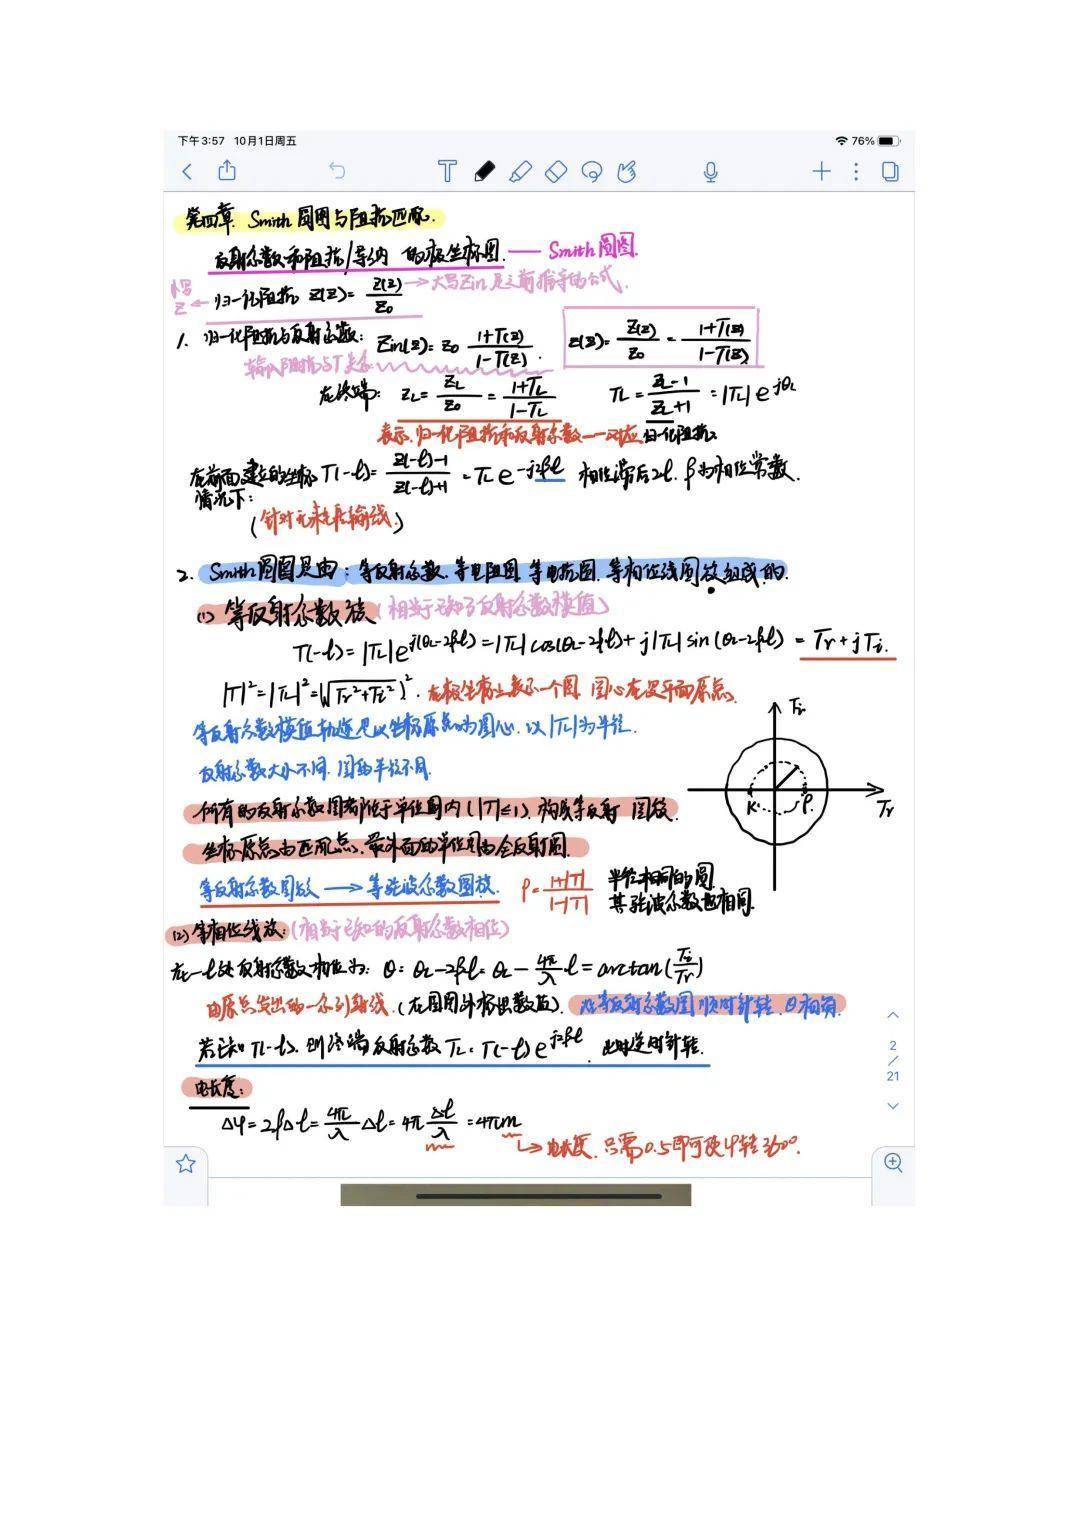 下午3:57 10月1日周五
76%
第四章. Smith 圆图与阻抗匹配.
反射系数和阻抗/导纳 的极坐标图. —— Smith圆图.
小写 z ← 归一化阻抗 z(z)= Z(z)/Z₀ → 大写Zin是之前推导的公式.
1. 归一化阻抗与反射系数: Zin(z)= Z₀ (1+Γ(z))/(1-Γ(z)). z(z)= Z(z)/Z₀ = (1+Γ(z))/(1-Γ(z))
输入阻抗与Γ关系
在终端: zL= ZL/Z₀ = (1+ΓL)/(1-ΓL) ΓL = (zL-1)/(zL+1) = |ΓL| e^jθL
表示归一化阻抗和反射系数一一对应 归一化阻抗
在前面建立的坐标情况下: Γ(-l)= (z(-l)-1)/(z(-l)+1) = ΓL e^-j2βl 相位滞后2βl. β为相位常数.
(针对无耗传输线)
2. Smith圆图是由: 等反射系数. 等电阻圆. 等电抗圆. 等相位线圆族组成的.
(1) 等反射系数族 (相当于已知了反射系数模值)
Γ(-l)= |ΓL|e^j(θL-2βl) = |ΓL| cos(θL-2βl)+ j|ΓL| sin (θL-2βl) = Γr + jΓi.
|Γ|²=|ΓL|²=(√(Γr²+Γi²))². 在极坐标上表示一个圆. 圆心在复平面原点.
等反射系数模值轨迹是以坐标原点为圆心. 以|ΓL|为半径.
反射系数大小不同. 圆的半径不同.
所有的反射系数圆都位于单位圆内(|Γ|≤1). 构成等反射 圆族.
坐标原点为匹配点. 最外面的单位圆为全反射圆.
Γi
K
ρ
Γr
等反射系数圆族 → 等驻波系数圆族. ρ= (1+|Γ|)/(1-|Γ|) 半径相同的圆
其驻波系数也相同.
(2) 等相位线族: (相当于已知的反射系数相位)
在-l处反射系数相位为: θ= θL-2βl= θL - (4π/λ) l = arctan(Γi/Γr)
由原点发出的一系列射线. (在圆图外标出数值). 沿等反射系数圆顺时针转. θ相角.
若已知Γ(-l). 则终端反射系数 ΓL= Γ(-l) e^j2βl. 此时逆时针转.
电长度:
Δφ= 2βΔl= (4π/λ) Δl= 4π Δl/λ = 4πm
→ 电长度. 只需0.5即可使φ转360°.
2
/
21